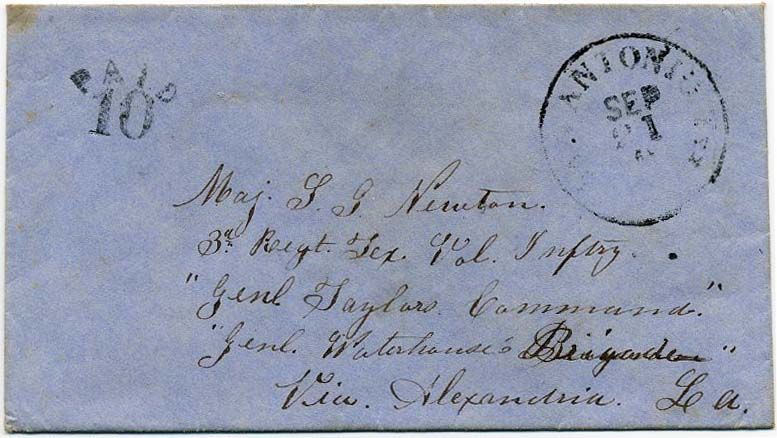 PAID
10
ANTONIO TEX
SEP
21
Maj. S. G. Newton.
3d Regt. Tex. Vol. Inftry.
"Genl Taylors Command."
"Genl. Waterhouse's Brigade"
Via. Alexandria. La.